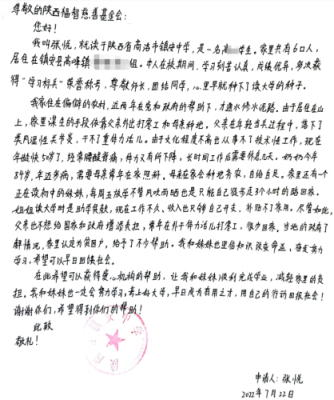 尊敬的陕西福智慈善基金会:
您好!
我叫张悦,就读于陕西省商洛市镇安中学,是一名高 学生。家里共有6口人,
居住在镇安县高峰镇 。本人在校期间,学习刻苦认真,成绩优异,多次获
得"学习标兵"荣誉称号,尊敬师长,团结同学,心里早就种下了读大学的种子。
我家住在偏僻的农村,近两年在党和政府的帮助下,才通水修水泥路。由于居住在山
上,家里谋生的手段只有靠父亲外出打零工和母亲种地。父亲在年轻当兵过程中,落下了
类风湿性关节炎,干不了重体力活儿。由于文化程度不高也从事不了技术性工作,现在
年龄快 岁,经常腰酸背痛,体力又有所下降,长时间工作后需要休息几天。奶奶今年
84岁,年迈多病,需要母亲常年在家照料。母亲在家会种地务农,自给自足。家里还有一个
正在读初中的妹妹,每周五放学不管风吹雨晒也是只能自己徒步走3个小时的路回家。
姐姐读大学时是助学贷款,现在工作不久,收入也只够自己开支,补贴不了家用。尽管如此,
父亲也不想给国家和政府增添负担,常年在外干体力活儿打零工,很少回家。当地的政府了
解情况,家里认定为贫困户,给予了不少帮助。我和妹妹也坚信知识改变命运,会发奋努力
学习,希望可以早日回报社会!
在此希望可以获得爱心机构的帮助,让我和妹妹顺利完成学业,减轻家里的负
担。我和妹妹也一定会努力学习,考上好大学,早日成为有用之才,用自己的行动回报社会!
谢谢你们,希望得到你们的帮助!
此致
敬礼!
申请人:张悦
2022年7月22日